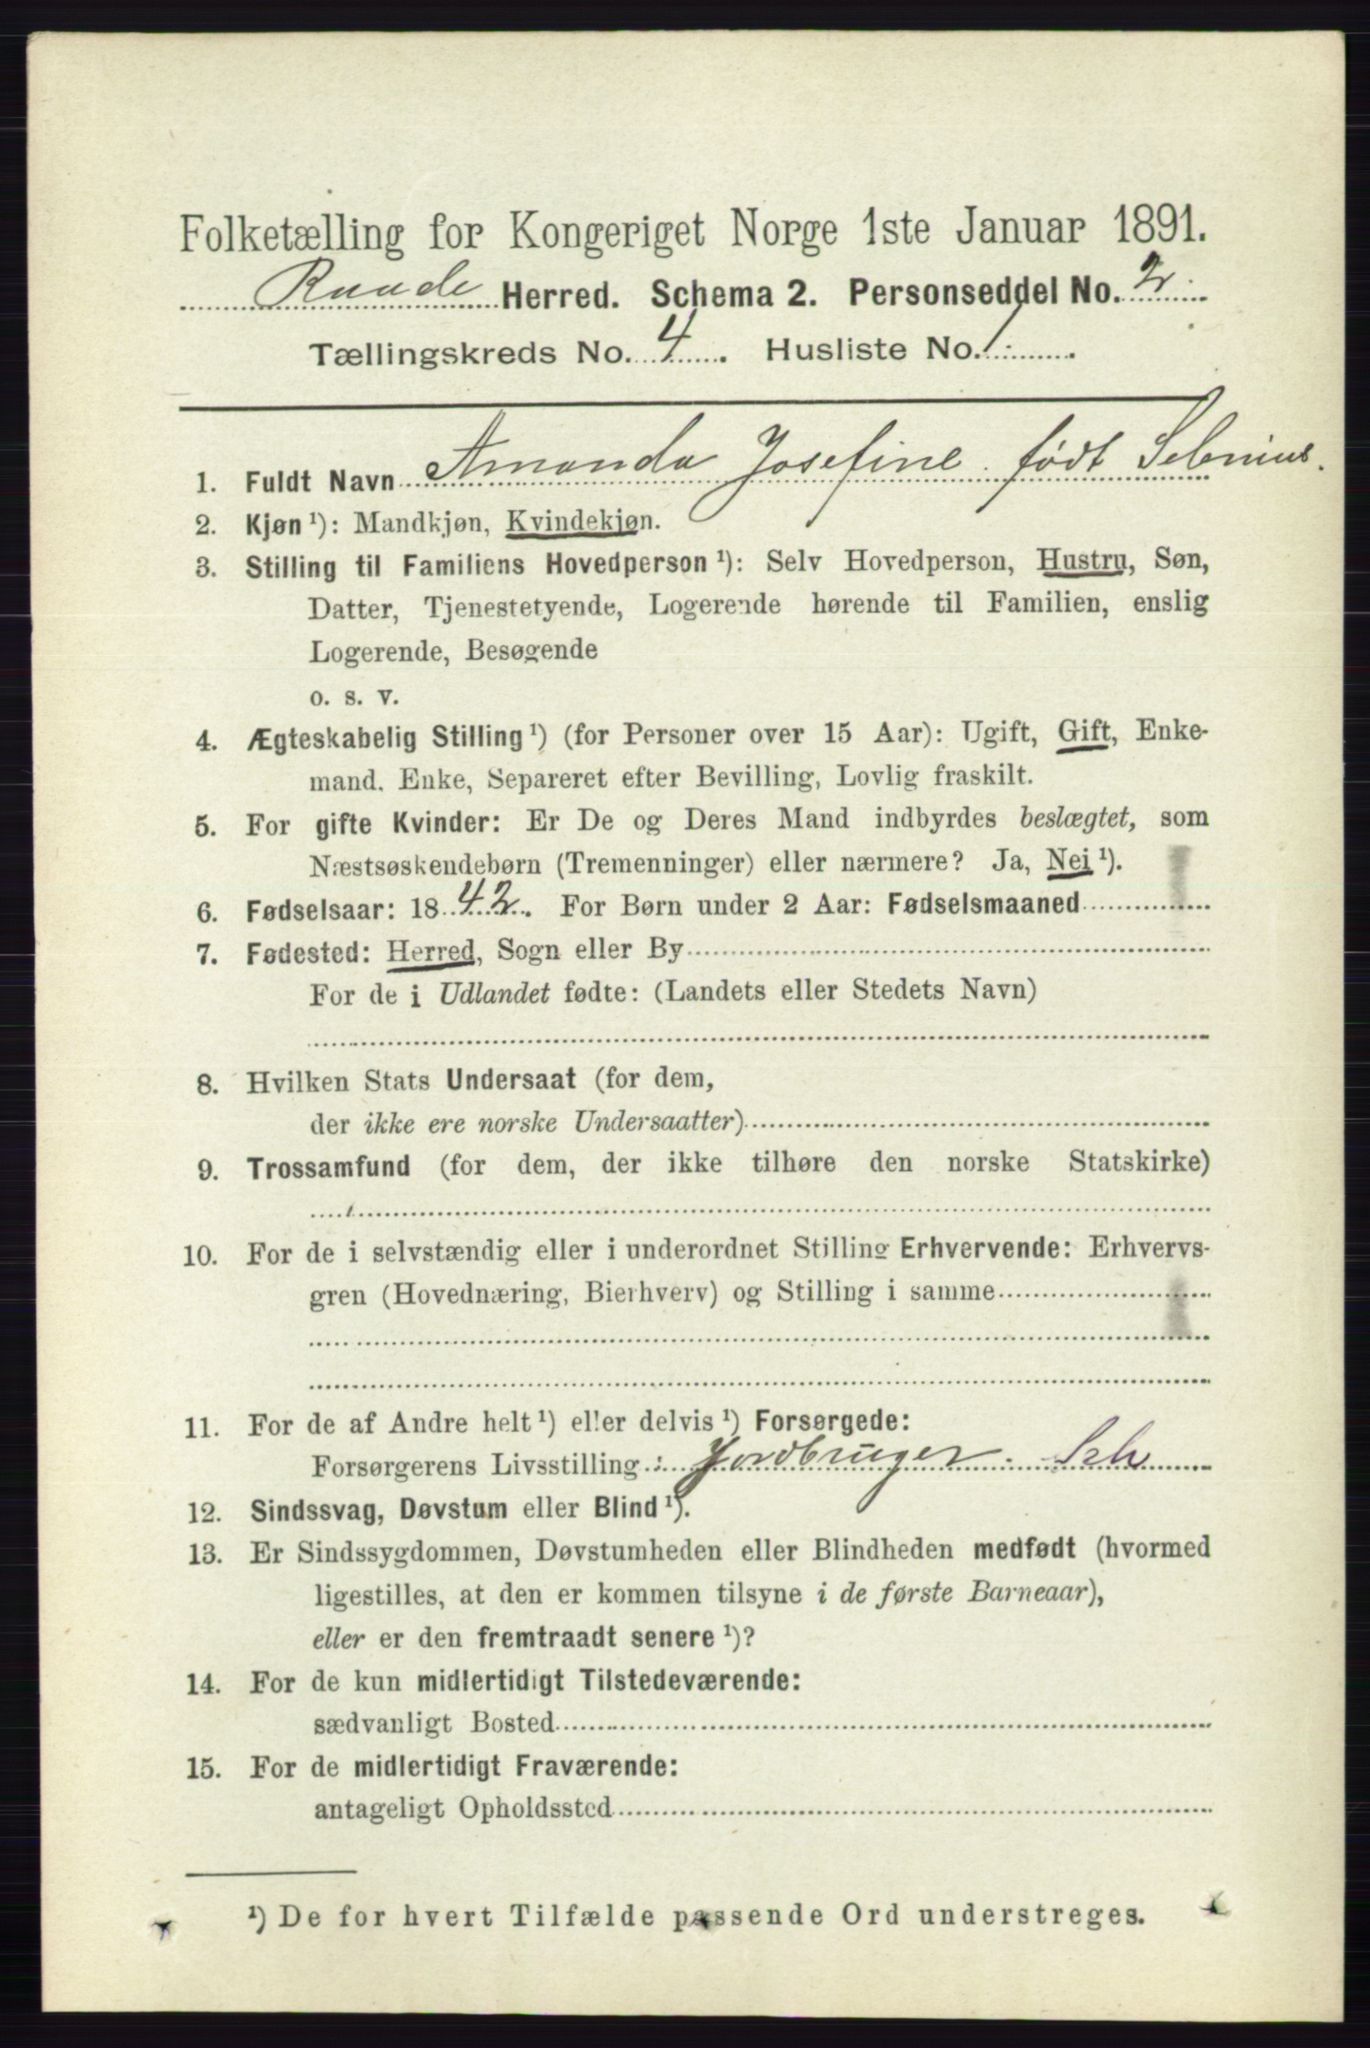 Folketælling for Kongeriget Norge 1ste Januar 1891.
Raade Herred. Schema 2. Personseddel No. 2
Tællingskreds No. 4. Husliste No. 1.
1. Fuldt Navn Amanda Josefine født Selmius.
2. Kjøn ¹): Mandkjøn, Kvindekjøn.
3. Stilling til Familiens Hovedperson ¹): Selv Hovedperson, Hustru, Søn,
Datter, Tjenestetyende, Logerende hørende til Familien, enslig
Logerende, Besøgende
o. s. v.
4. Ægteskabelig Stilling ¹) (for Personer over 15 Aar): Ugift, Gift, Enke-
mand. Enke, Separeret efter Bevilling, Lovlig fraskilt.
5. For gifte Kvinder: Er De og Deres Mand indbyrdes beslægtet, som
Næstsøskendebørn (Tremenninger) eller nærmere? Ja, Nei ¹).
6. Fødselsaar: 1842. For Børn under 2 Aar: Fødselsmaaned
7. Fødested: Herred, Sogn eller By
For de i Udlandet fødte: (Landets eller Stedets Navn)
8. Hvilken Stats Undersaat (for dem,
der ikke ere norske Undersaatter)
9. Trossamfund (for dem, der ikke tilhøre den norske Statskirke)
10. For de i selvstændig eller i underordnet Stilling Erhvervende: Erhvervs-
gren (Hovednæring, Bierhverv) og Stilling i samme
11. For de af Andre helt ¹) eller delvis ¹) Forsørgede:
Forsørgerens Livsstilling: Jordbruger. Selv
12. Sindssvag, Døvstum eller Blind ¹).
13. Er Sindssygdommen, Døvstumheden eller Blindheden medfødt (hvormed
ligestilles, at den er kommen tilsyne i de første Barneaar),
eller er den fremtraadt senere ¹)?
14. For de kun midlertidigt Tilstedeværende:
sædvanligt Bosted
15. For de midlertidigt Fraværende:
antageligt Opholdssted
¹) De for hvert Tilfælde passende Ord understreges.